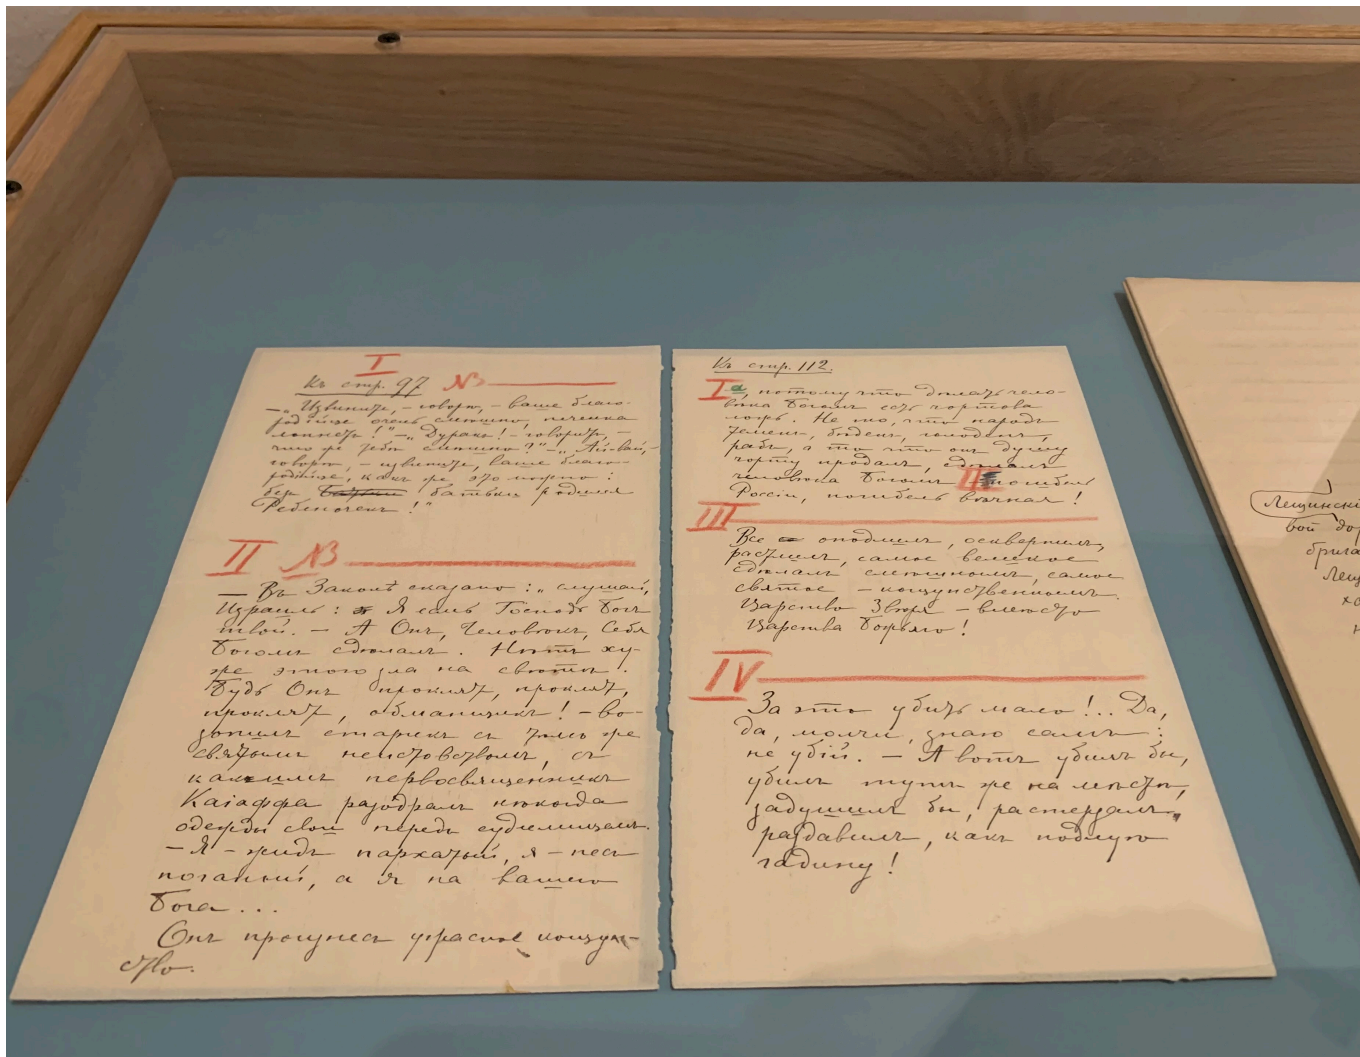 I
Къ стр. 97 №3
— „Извините, – говорю, – ваше благо-
родiе очень смешно, печенка
лопнетъ!" – „Дуракъ! – говоритъ, –
что же тебѣ смешно?" – „Ай-вай, –
говорю, – извините, ваше благо-
родiе, какъ же это можно:
безъ батьки родился
Ребеночекъ!"
II №3
— Въ Законѣ сказано: „слушай,
Израиль: Я есмь Господь Богъ
твой. – А Онъ, Человѣкъ, Себя
Богомъ сдѣлалъ. Нѣтъ ху-
же этого зла на свѣтѣ.
Будь Онъ проклятъ, проклятъ,
проклятъ, обманщикъ! – во-
зопилъ старикъ съ тѣмъ же
святымъ неистовствомъ, съ
какимъ первосвященникъ
Каiаффа разодралъ нѣкогда
одежды свои передъ судилищемъ.
– Я – жидъ пархатый, я – песъ
поганый, а я на вашего
Бога...
Онъ произнесъ ужасное кощун-
ство.
Къ стр. 112.
Iа, потому что дѣлать чело-
вѣка Богомъ есть чортова
ложь. Не то, что народъ
теменъ, бѣденъ, голоденъ,
рабъ, а то что онъ душу
чорту продалъ, сдѣлалъ
человѣка Богомъ II погибель
Россiи, погибель вѣчная!
III
Все оподлилъ, осквернилъ,
растлилъ, самое великое
сдѣлалъ смешнымъ, самое
святое – кощунственнымъ.
Царство Звѣря – вмѣсто
Царства Божьяго!
IV
За это убить мало!.. Да,
да, молчи, знаю самъ:
не убiй. – А вотъ убилъ бы,
убилъ тутъ же на мѣстѣ,
задушилъ бы, растерзалъ,
раздавилъ, какъ подлую
гадину!
Лещински
вой дор
брига
Лещ